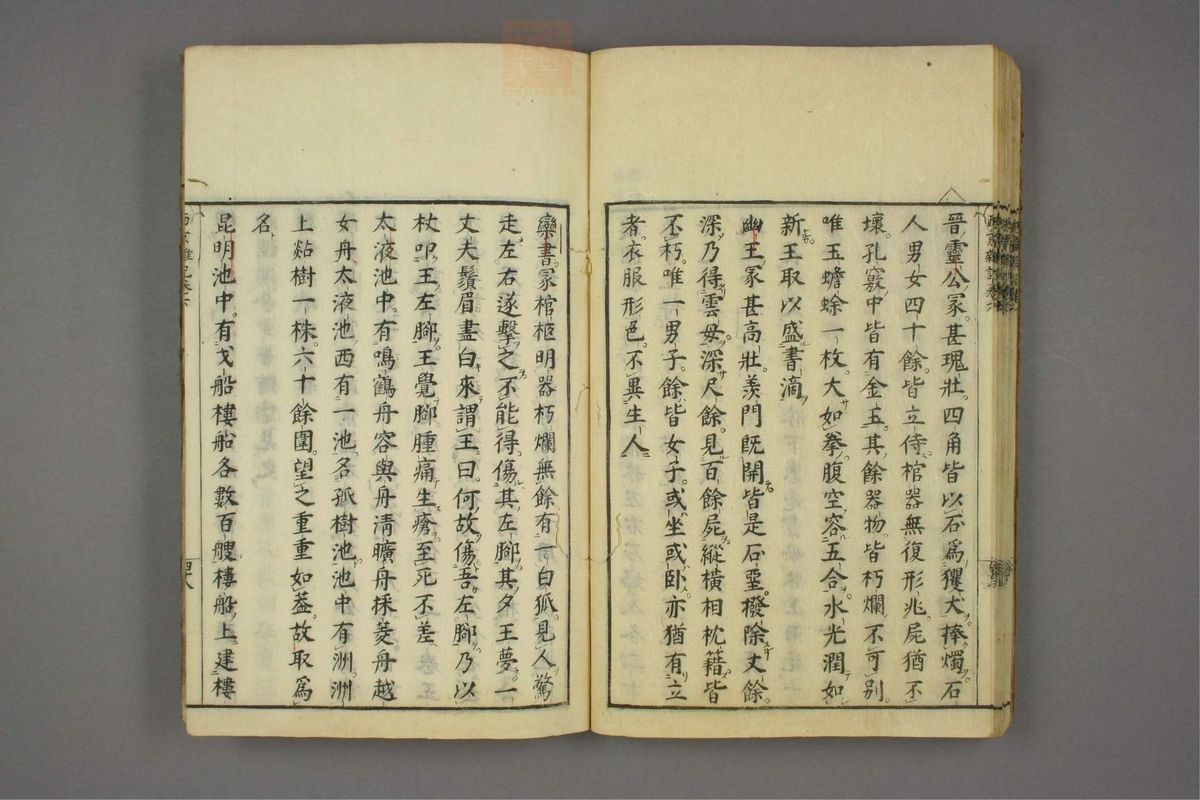 晉靈公冢甚瑰壯四角皆以石爲玃犬捧燭石
人男女四十餘皆立侍棺器無復形兆屍猶不
壞孔竅中皆有金玉其餘器物皆朽爛不可別
唯玉蟾蜍一枚大如拳腹空容五合水光潤如
新王取以盛書滴
幽王冢甚高壯羨門旣開皆是石堊撥除丈餘
深乃得雲母深尺餘見百餘屍縱橫相枕籍皆
不朽唯一男子餘皆女子或坐或卧亦猶有立
者衣服形色不異生人
欒書冢棺柩明器朽爛無餘有白狐見人驚
走左右遂擊之不能得傷其左脚其夕王夢一
丈夫鬚眉盡白來謂王曰何故傷吾左脚乃以
杖叩王左脚王覺脚腫痛生瘡至死不差
太液池中有鳴鶴舟容與舟淸曠舟採菱舟越
女舟太液池西有一池名孤樹池池中有洲洲
上㸃樹一株六十餘圍望之重重如葢故取爲
名
昆明池中有戈船樓船各數百艘樓船上建樓